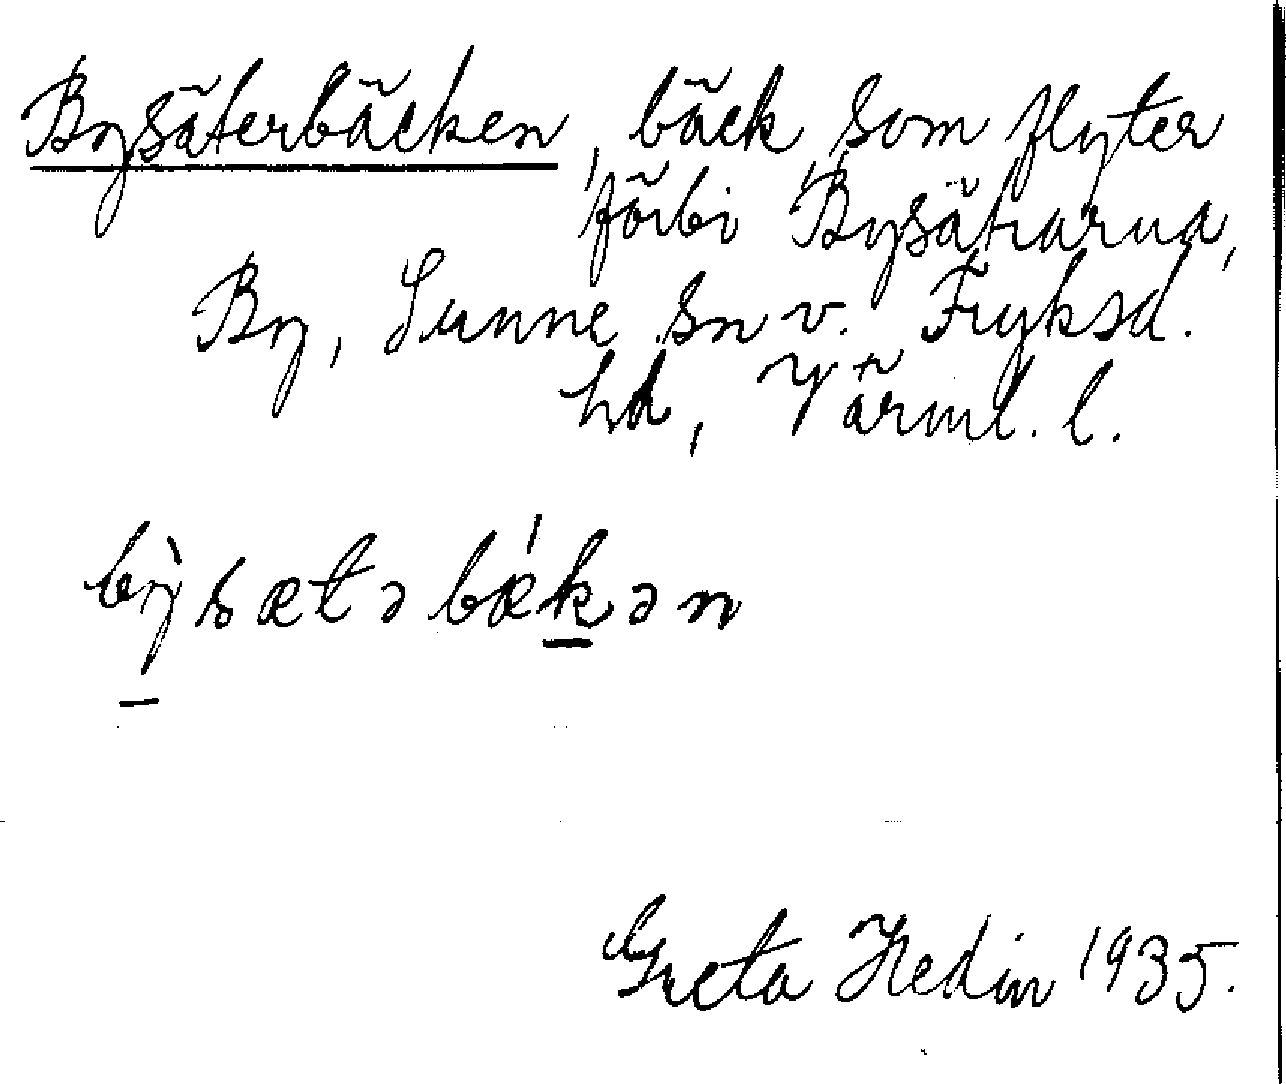 Bysäterbäcken, bäck, som flyter
förbi Bysätrarna,
By, Sunne sn v. Fryksd.
hd, Värml. l.
bỳsætəbǽkən
Greta Hedin 1935.